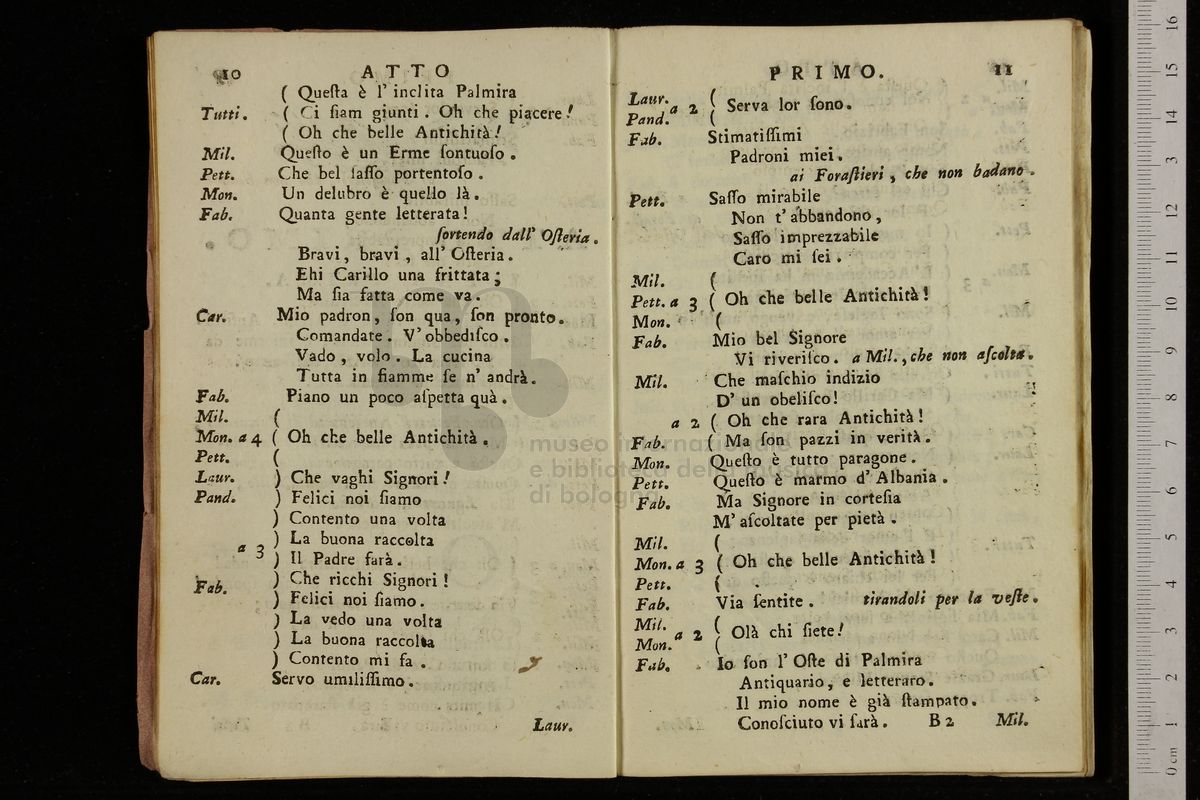 10 ATTO
( Queſta è l' inclita Palmira
Tutti. ( Ci ſiam giunti. Oh che piacere!
( Oh che belle Antichità!
Mil. Queſto è un Erme ſontuoſo.
Pett. Che bel ſaſſo portentoſo.
Mon. Un delubro è quello là.
Fab. Quanta gente letterata!
ſortendo dall' Oſteria.
Bravi, bravi, all' Oſteria.
Ehi Carillo una frittata;
Ma ſia fatta come va.
Car. Mio padron, ſon qua, ſon pronto.
Comandate. V' obbediſco.
Vado, volo. La cucina
Tutta in fiamme ſe n' andrà.
Fab. Piano un poco aſpetta quà.
Mil. (
Mon. a 4 ( Oh che belle Antichità.
Pett. (
Laur. ) Che vaghi Signori!
Pand. ) Felici noi ſiamo
) Contento una volta
) La buona raccolta
a 3 ) Il Padre farà.
) Che ricchi Signori!
Fab. ) Felici noi ſiamo.
) La vedo una volta
) La buona raccolta
) Contento mi fa.
Car. Servo umiliſſimo.
Laur.
PRIMO. 11
Laur. (
a 2 ( Serva lor ſono.
Pand. (
Fab. Stimatiſſimi
Padroni miei.
ai Foraſtieri, che non badano.
Pett. Saſſo mirabile
Non t' abbandono,
Saſſo imprezzabile
Caro mi ſei.
Mil. (
Pett. a 3 ( Oh che belle Antichità!
Mon. (
Fab. Mio bel Signore
Vi riveriſco. a Mil., che non aſcolta.
Mil. Che maſchio indizio
D' un obeliſco!
a 2 ( Oh che rara Antichità!
Fab. ( Ma ſon pazzi in verità.
Mon. Queſto è tutto paragone.
Pett. Queſto è marmo d' Albania.
Fab. Ma Signore in corteſia
M' aſcoltate per pietà.
Mil. (
Mon. a 3 ( Oh che belle Antichità!
Pett. (
Fab. Via ſentite. tirandoli per la veſte.
Mil. (
a 2 ( Olà chi ſiete!
Mon. (
Fab. Io ſon l' Oſte di Palmira
Antiquario, e letteraro.
Il mio nome è già ſtampato.
Conoſciuto vi ſarà. B 2 Mil.
museo internazionale
e biblioteca della musica
di bologna
0 cm 1 2 3 4 5 6 7 8 9 10 11 12 13 14 15 16